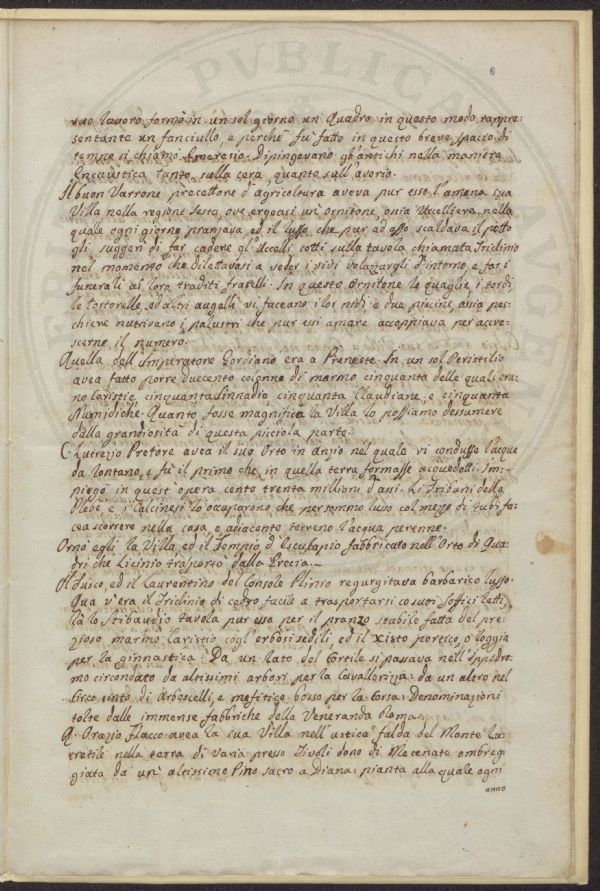 6
suo lavoro formò in un sol giorno un Quadro in questo modo rappre-
sentante un fanciullo, e perchè fu fatto in questo breve spacio di
tempo si chiamò Emeresio. Dipingevano gl'antichi nella maniera
Encaustica tanto sulla cera, quanto sull'avorio.
Il buon Varrone precettore d'agricoltura aveva pur esso l'amena sua
Villa nella regione sesta, ove ergeasi un Ornitone, ossia Uccelliera, nella
quale ogni giorno pranzava, ed il lusso che pur ad esso scaldava il petto
gli suggerì di far cadere gl'Uccelli cotti sulla tavola chiamata Triclinio
nel momento che dilettavasi a veder i vivi volazzargli d'intorno, e far i
funerali ai loro traditi fratelli. In questo Ornitone le quaglie, i tordi,
le tortorelle, ed altri augelli vi faceano i lor nidi e due piscine, ossia pes-
chiere nutrivano i palustri che pur essi amare accopiava per accre-
scerne il numero.
Quella dell'Imperatore Gordiano era a Preneste. In un sol Peristilio
avea fatto porre duecento colonne di marmo cinquanta delle quali era-
no laristie cinquanta sinnadie cinquanta Claudiane, e cinquanta
Numidiche. Quanto fosse magnifica la Villa lo possiamo dessumere
dalla grandiosità di questa picciola parte.
C. Lucrezio Pretore avea il suo Orto in Anzio nel quale vi condusse l'acque
da lontano, e fu il primo che in quella terra formasse acquedotti. Im-
piegò in quest'opera cento trenta millioni d'assi. Li Tribuni della
Plebe e i Calcinesi lo accusarono che per sommo lusso col mezzo di tubi fa-
cea scorrere nella casa, o adiacente terreno l'acqua perenne.
Ornò egli la Villa, ed il Tempio d'Esculapio fabbricato nell'Orto di Qua-
dri che Licinio trasportò dalla Grecia.
Il Tusco, ed il Laurentino del Console Plinio regurgitava barbarico lusso.
Qua v'era il Triclinio di cedro facile a trasportarsi co suoi soffici letti,
là lo Stibaudio tavola pur essa per il pranzo stabile fatta del pre-
zioso marmo laristio cogl'erbosi sedili, ed il xisto portico, o loggia
per la ginnastica: Da un lato del Cortile si passava nell'Ippodro-
mo circondato da altissimi arbori per la Cavallerizza: da un altro nel
Circo cinto di Arboscelli, e mefitico bosso per la Corsa: Denominazioni
tolte dalle immense fabbriche della Veneranda Roma.
Q. Orazio Flacco avea la sua Villa nell'ustica falda del Monte Lu-
cretile nella terra di Varia presso Tivoli dono di Mecenate ombreg-
giata da un altissimo Pino sacro a Diana: pianta alla quale ogni
anno
PVBLICA